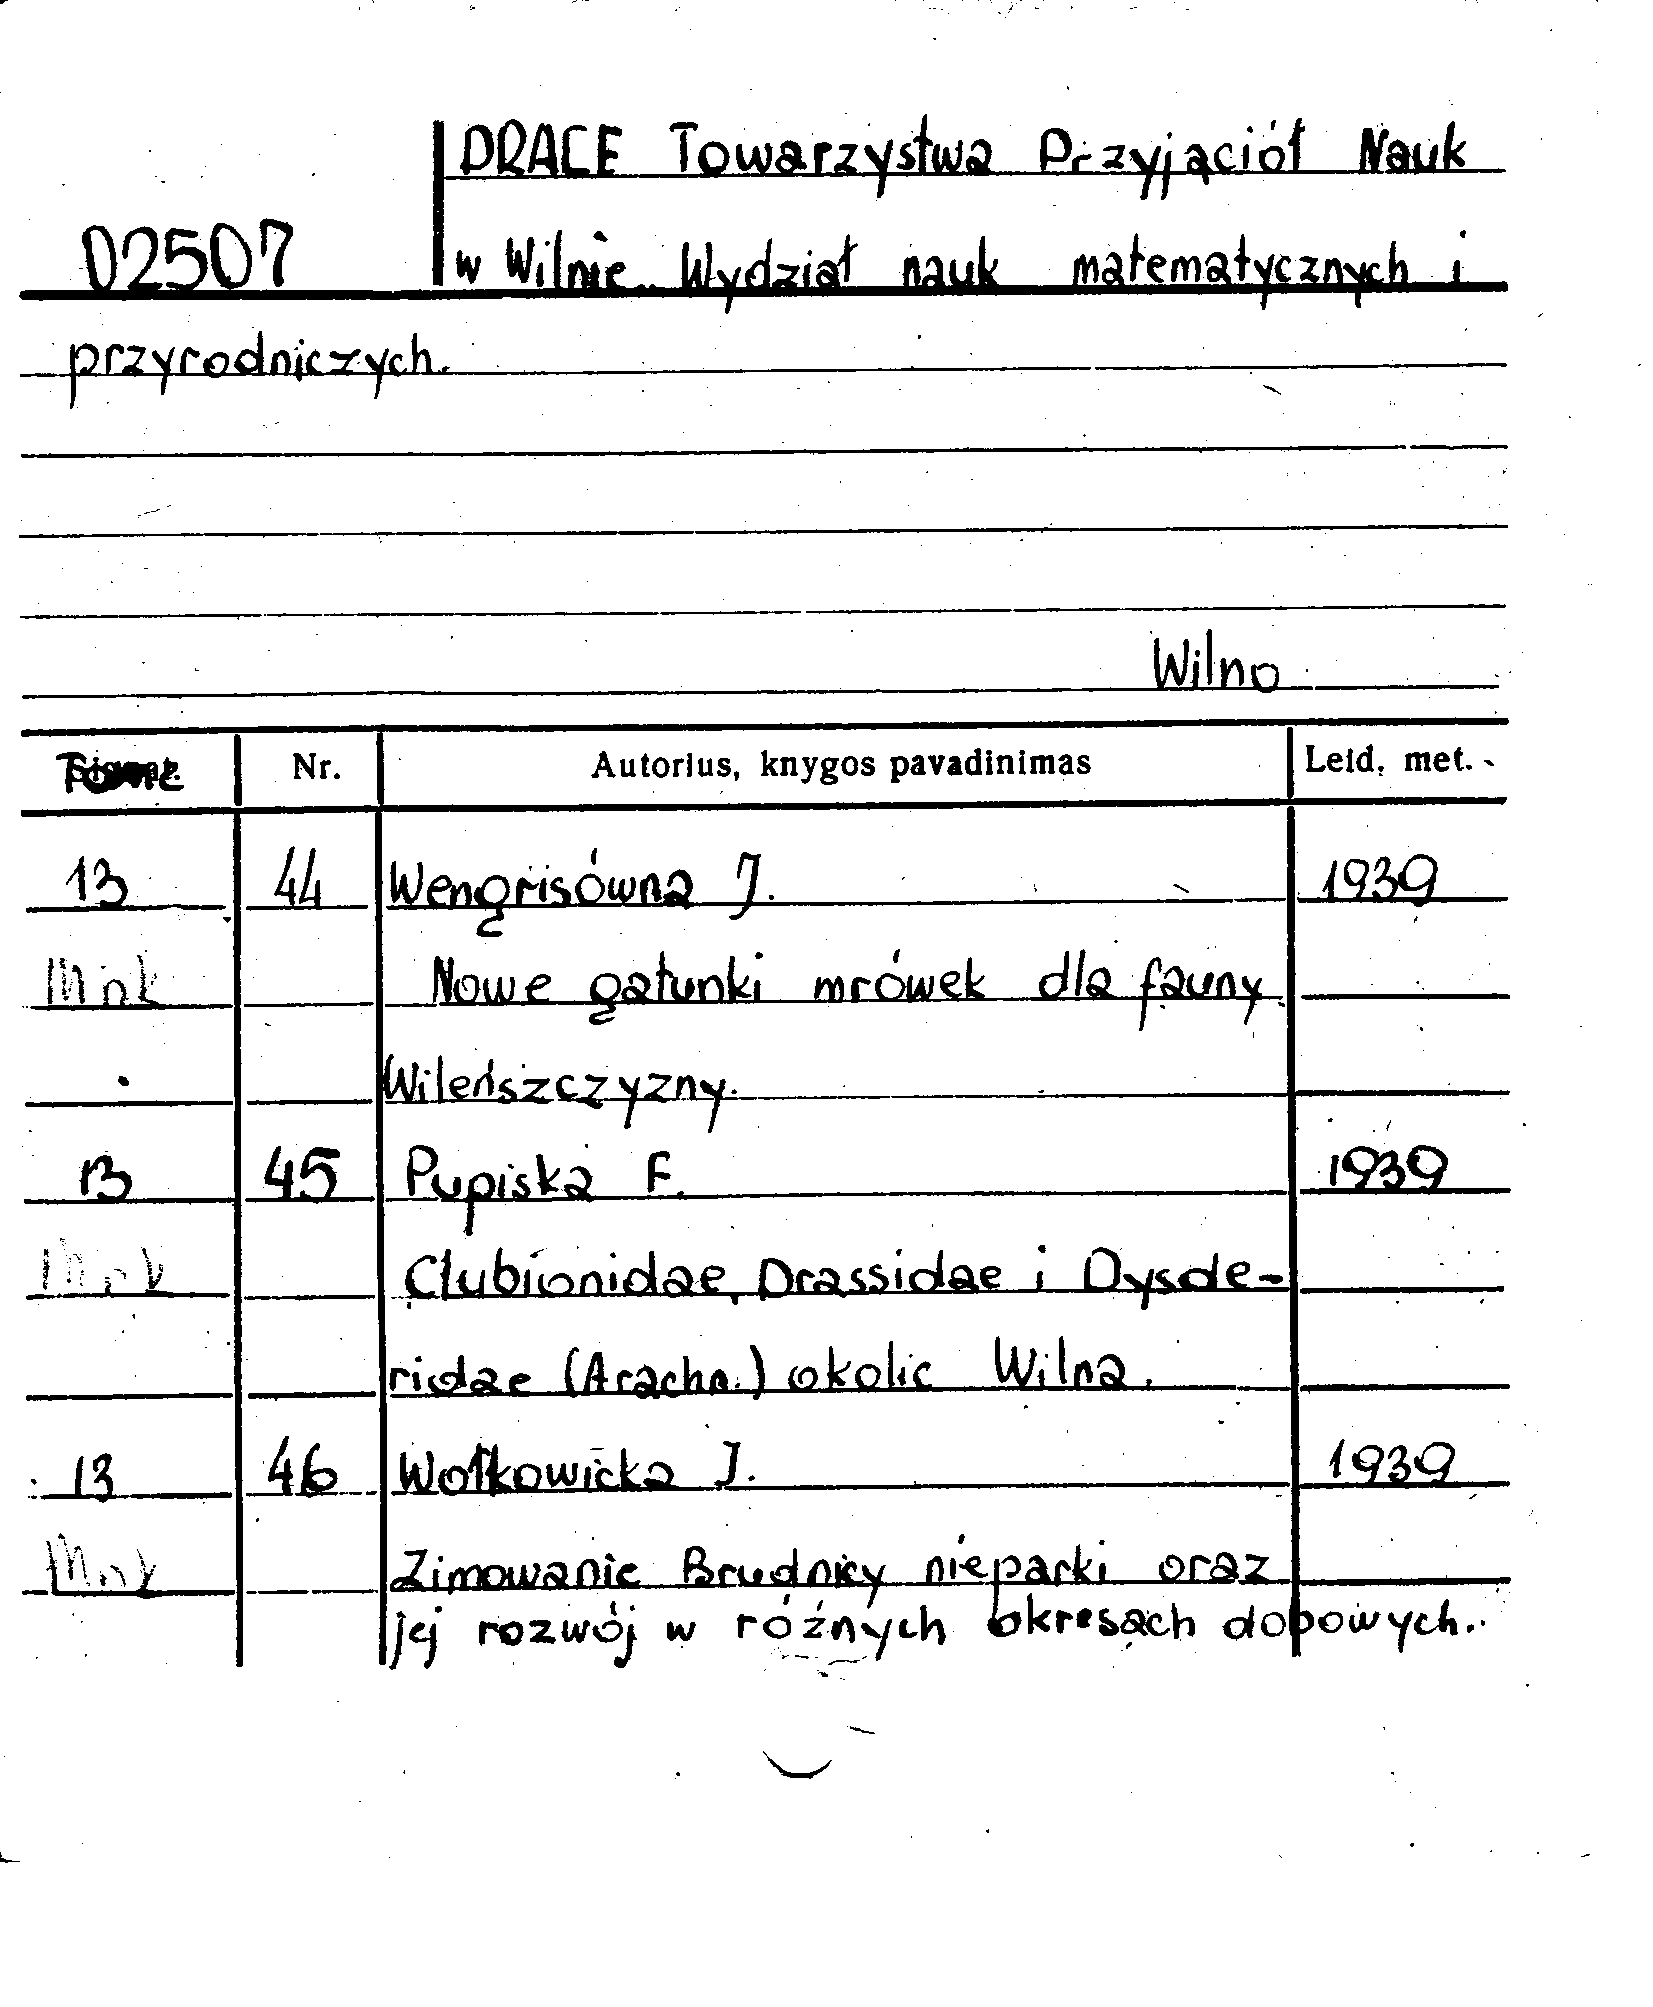 PRACE Towarzystwa Przyjaciół Nauk
02507 w Wilnie. Wydział nauk matematycznych i
przyrodniczych.
Wilno
Tome Nr. Autorius, knygos pavadinimas Leid. met.
13 44 Wengrisówna J. 1939
Nowe gatunki mrówek dla fauny
Wileńszczyzny.
13 45 Pupiska F. 1939
Clubiionidae, Drassidae i Dysde-
ridae (Arachn.) okolic Wilna.
13 46 Wołkowicka J. 1939
Zimowanie Brudnicy nieparki oraz
jej rozwój w różnych okresach dobowych.